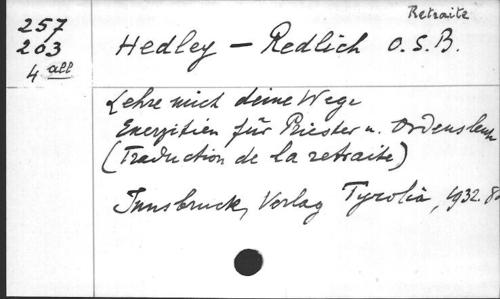 Retraite
257
203
4 all
Hedley - Redlich O.S.B.
Lehre mich deine Wege
Exerzitien für Priester u. Ordensleute
(Traduction de la retraite)
Innsbruck, Verlag Tyrolia, 1932. 8o